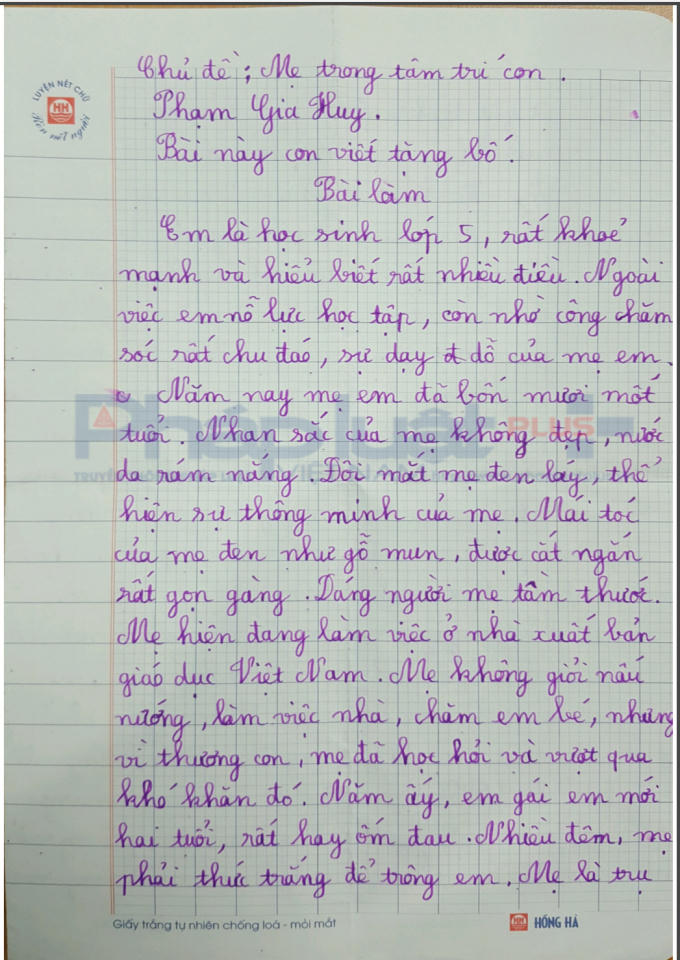 Chủ đề: Mẹ trong tâm trí con.
Phạm Gia Huy.
Bài này con viết tặng bố.
Bài làm
Em là học sinh lớp 5, rất khoẻ
mạnh và hiểu biết rất nhiều điều. Ngoài
việc em nỗ lực học tập, còn nhờ công chăm
sóc rất chu đáo, sự dạy đ dỗ của mẹ em.
Năm nay mẹ em đã bốn mươi một
tuổi. Nhan sắc của mẹ không đẹp, nước
da rám nắng. Đôi mắt mẹ đen láy, thể
hiện sự thông minh của mẹ. Mái tóc
của mẹ đen như gỗ mun, được cắt ngắn
rất gọn gàng. Dáng người mẹ tầm thước.
Mẹ hiện đang làm việc ở nhà xuất bản
giáo dục Việt Nam. Mẹ không giỏi nấu
nướng, làm việc nhà, chăm em bé, nhưng
vì thương con, mẹ đã học hỏi và vượt qua
khó khăn đó. Năm ấy, em gái em mới
hai tuổi, rất hay ốm đau. Nhiều đêm, mẹ
phải thức trắng để trông em. Mẹ là trụ
LUYỆN NÉT CHỮ
Rèn nết người
HH
Pháp luật PLUS
Giấy trắng tự nhiên chống loá - mỏi mắt
HH HỒNG HÀ